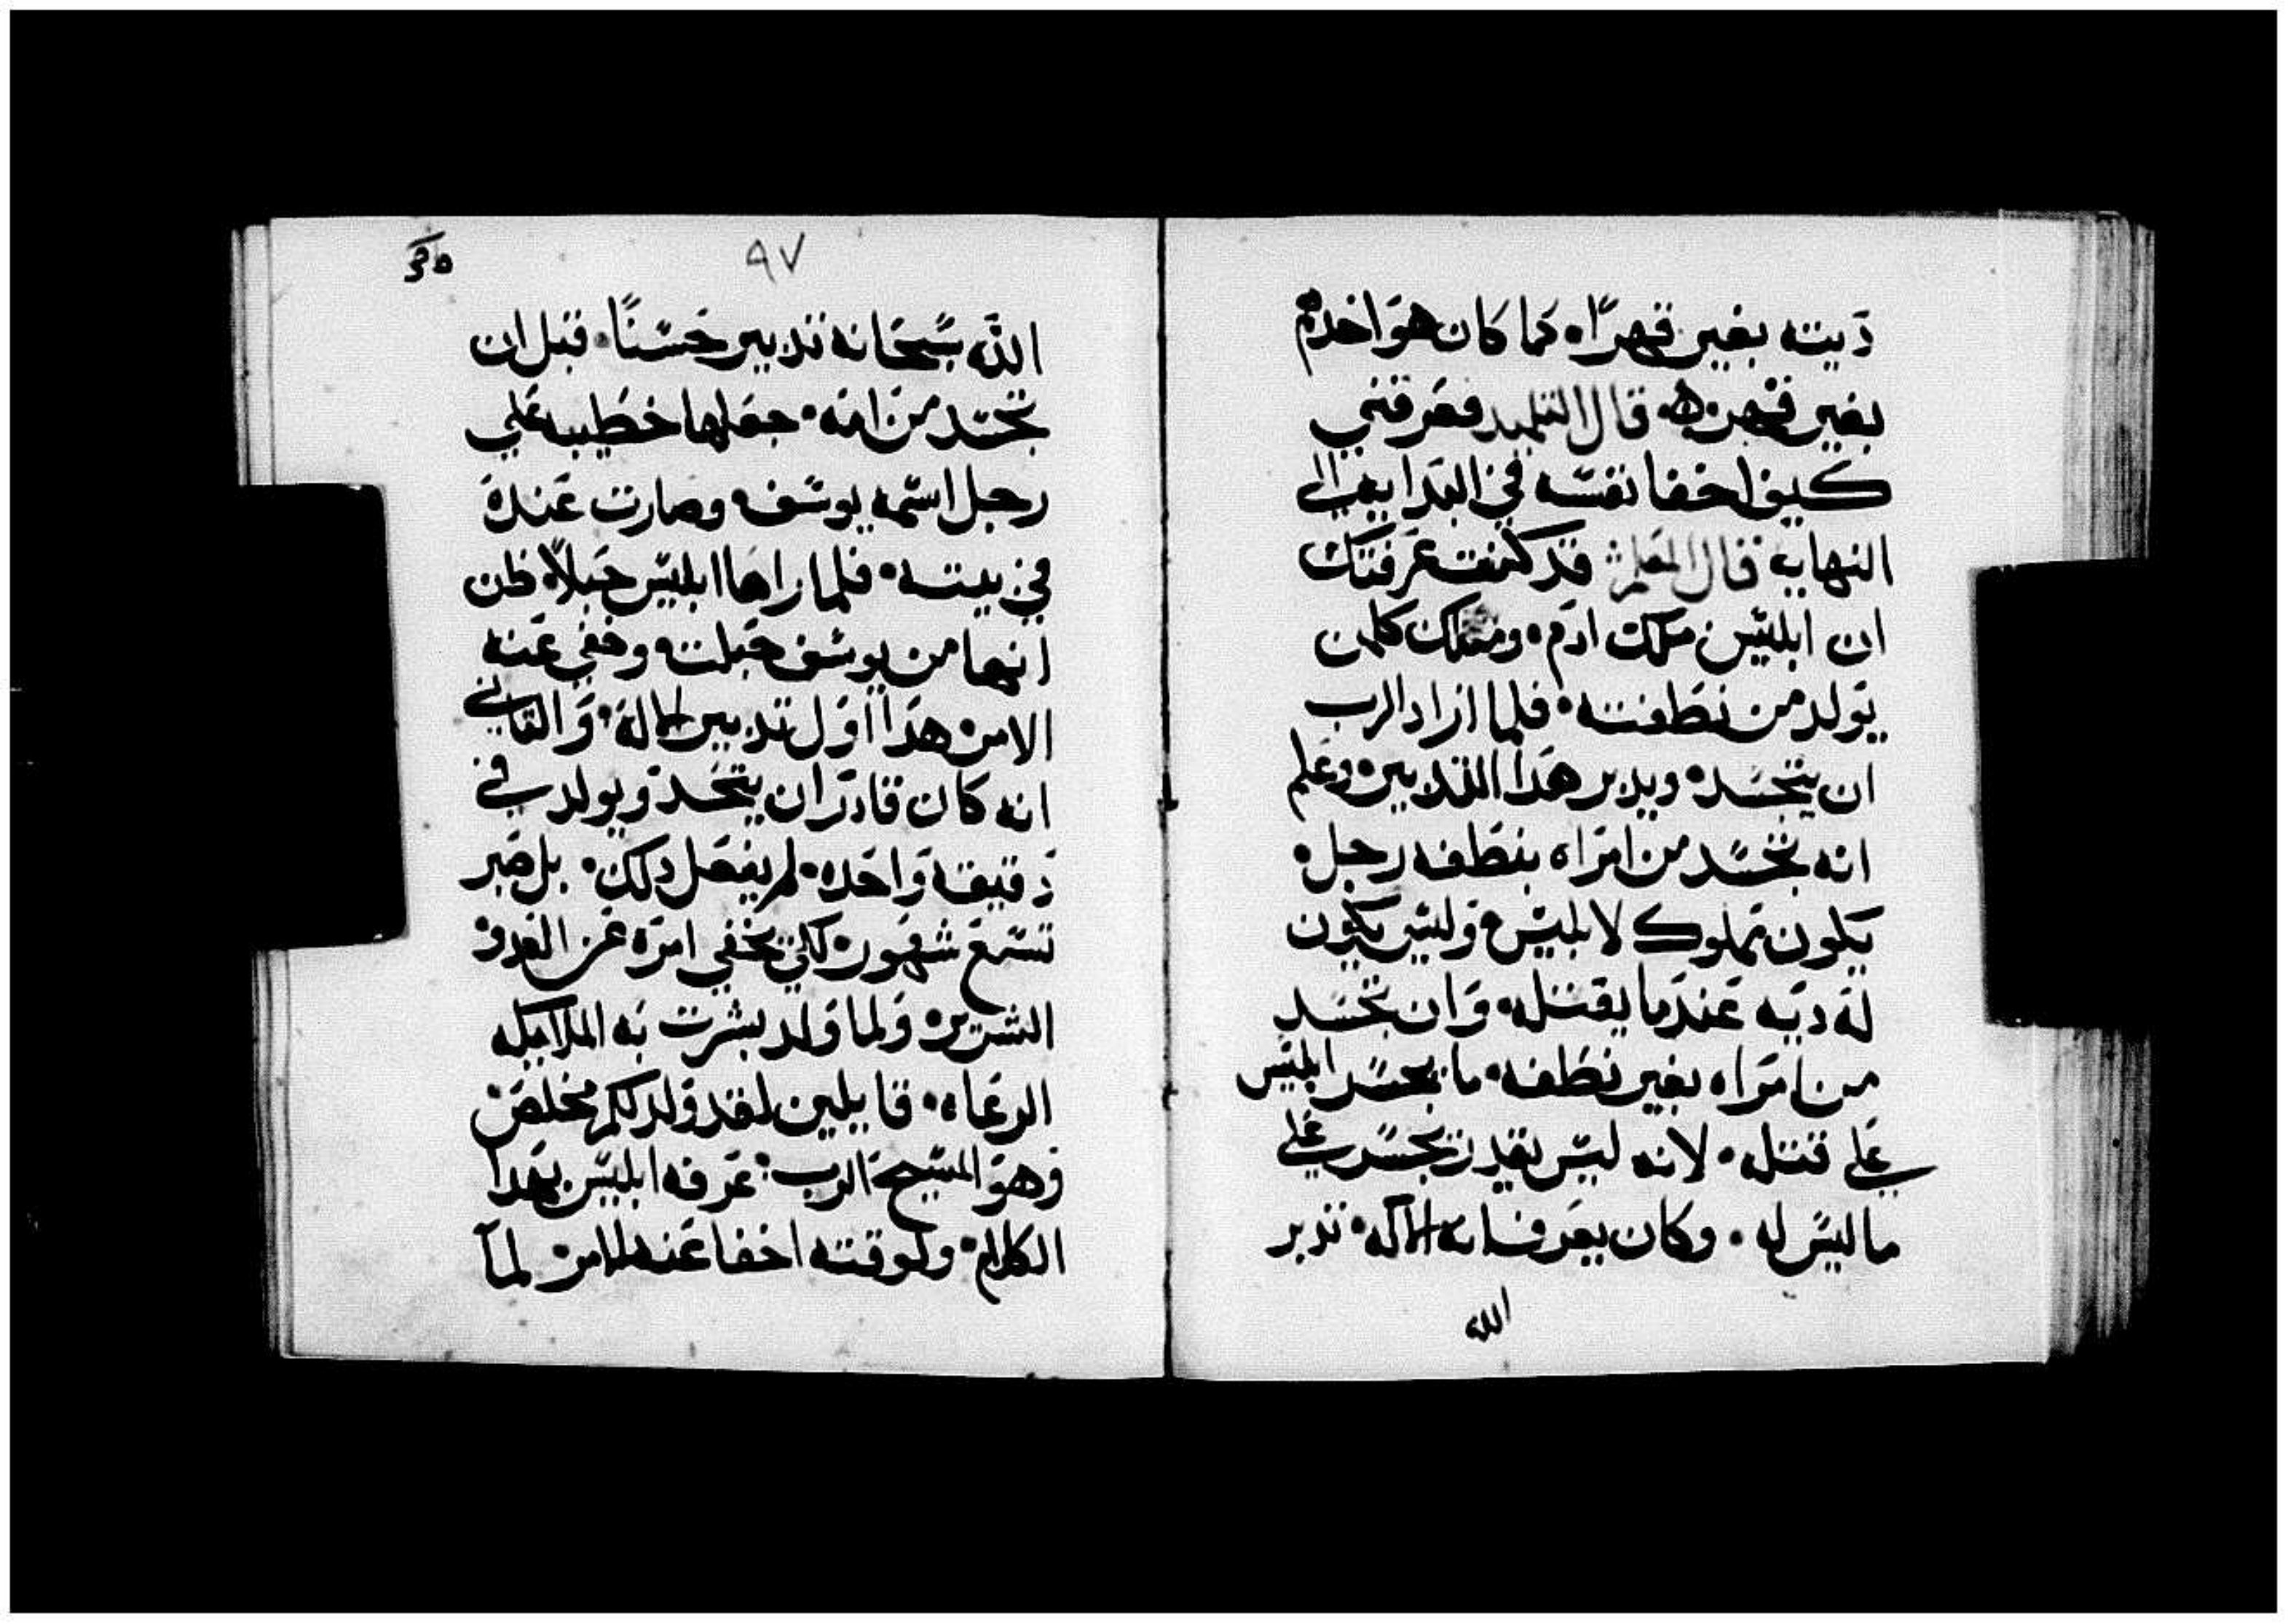 ديته بغير قهرًا. كما كان هو اخدهم
بغير قهر. قال التلميد فعرفني
كيف اخفا نفسه في البدايه الي
النهايه قال المعلم قد كنت عرفتك
ان ابليس ملك ادم. وملك كلمن
يولد من نطفته. فلما اراد الرب
ان يتجسد. ويدبر هدا التدبير. وعلم
انه تجسد من امراه بنطفه رجل.
يكون مملوك لابليس. وليس يكون
له ديه عندما يقتله. وان تجسد
من امراه بغير نطفه. ما يجسر ابليس
علي قتله. لانه ليس يقدر يجسر علي
ما ليس له. وكان يعرف انه الاله. تدبر
الله
٩٧
الله سبحانه تدبير حسنًا. قبل ان
تجسد من امه. جعلها خطيبه علي
رجل اسمه يوسف. وصارت عنده
في بيته. فلما راها ابليس حبلا. ظن
انها من يوسف حبلت. وخفي عنه
الامر. هدا اول تدبير الاله. والتاني
انه كان قادر ان يتجسد ويولد في
دقيقه واحده. لم يفعل دلك. بل صبر
تسع شهور. كي يخفي امره عن العدو
الشرير. ولما ولد بشرت به الملايكه
الرعاه. قايلين لقد ولد لكم مخلص
وهو المسيح الرب. عرفه ابليس بهدا
الكلام. ولوقته اخفا عنه الامر لما